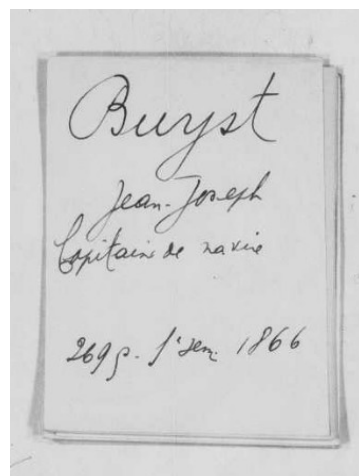 Buyst
Jean-Joseph
Capitaine de navire
269 p. 1er sem. 1866